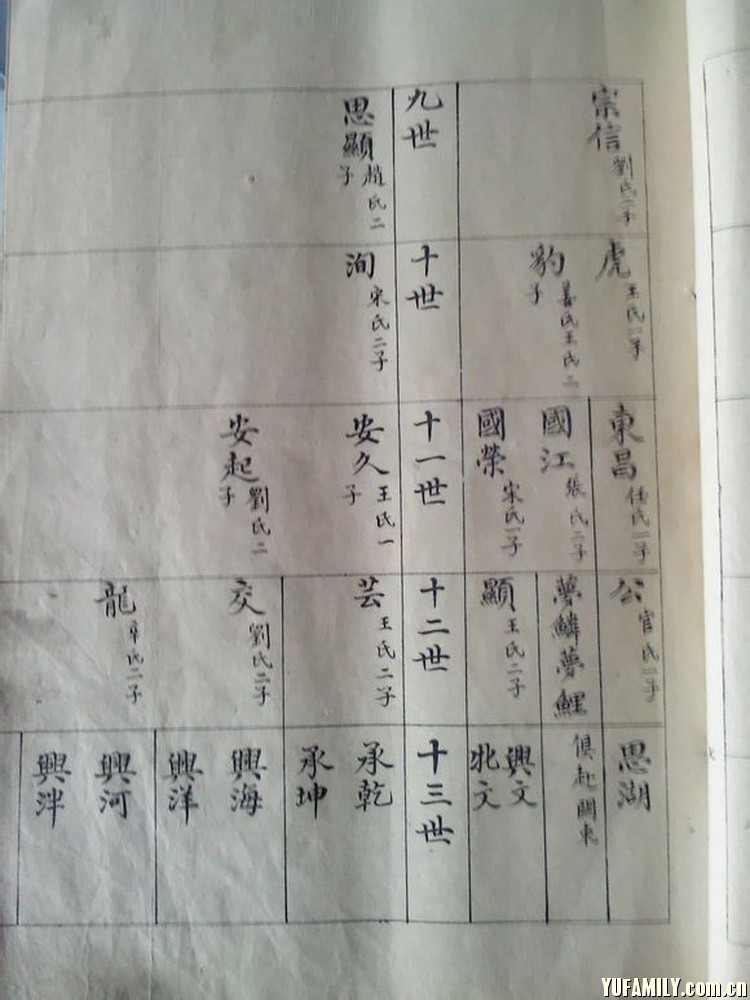 宗信 劉氏二子
九世
思顯 趙氏二子
虎 王氏一子
豹 姜氏王氏二子
十世
洵 宋氏二子
東昌 任氏一子
國江 張氏二子
國榮 宋氏一子
十一世
安久 王氏一子
安起 劉氏二子
公 官氏一子
夢鱗夢鯉
顯 王氏二子
十二世
芸 王氏二子
交 劉氏二子
龍 辛氏二子
思湖
俱赴關東
興文
北文
十三世
承乾
承坤
興海
興洋
興河
興泮
YUFAMILY.com.cn